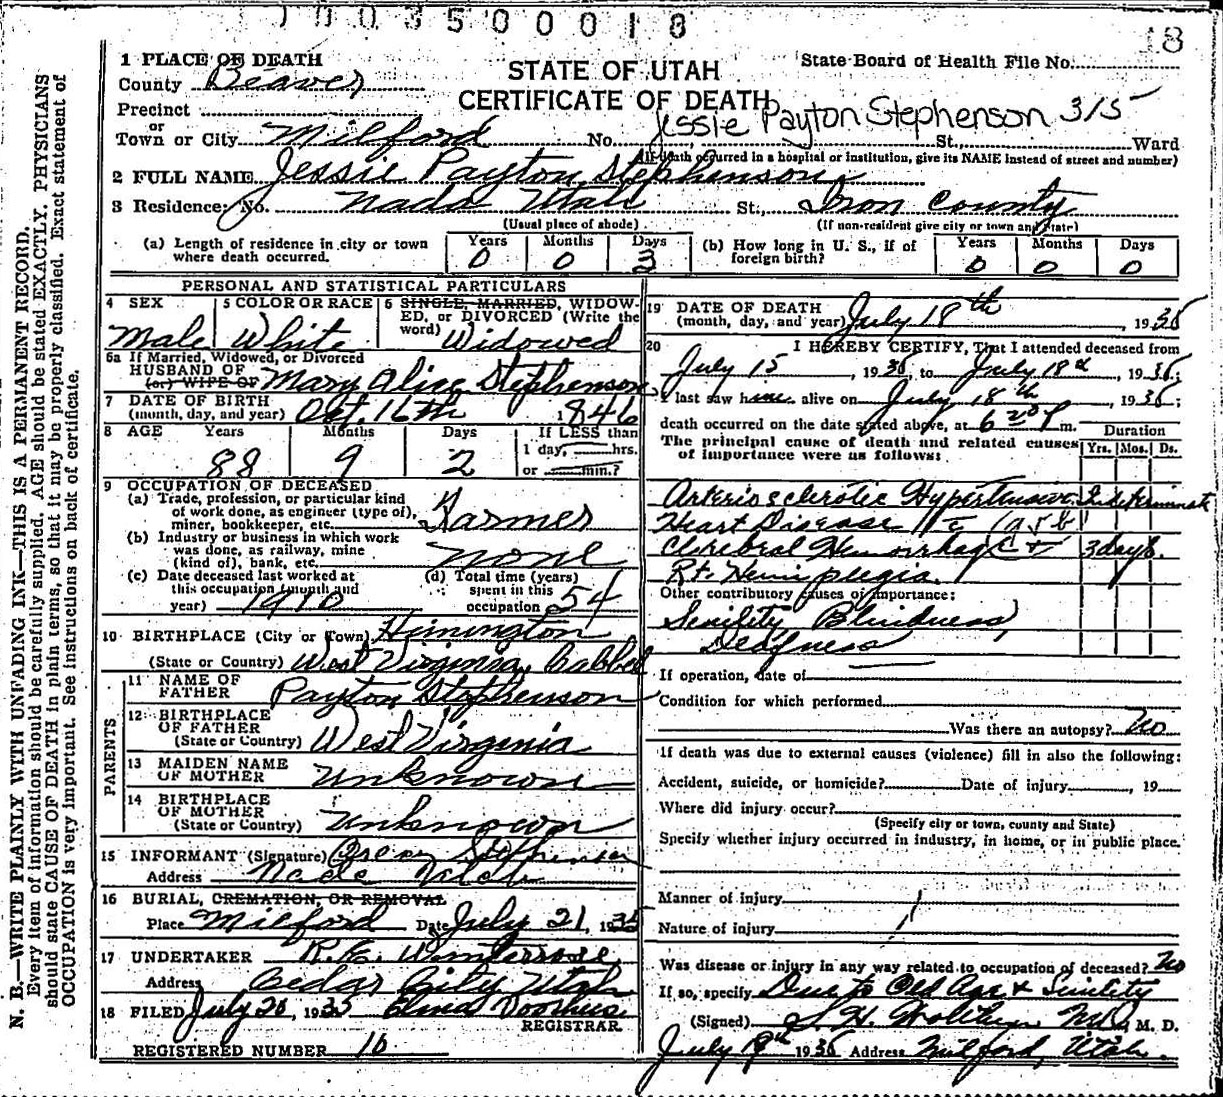 0035000 18
18
1 PLACE OF DEATH
County Beaver
STATE OF UTAH
CERTIFICATE OF DEATH
State Board of Health File No.
Precinct
or
Town or City Milford No. St., Ward
Jessie Payton Stephenson 3/5
(If death occurred in a hospital or institution, give its NAME instead of street and number)
2 FULL NAME Jessie Payton Stephenson
3 Residence: No. Nada Utah St., Iron County
(Usual place of abode) (If non-resident give city or town and State)
(a) Length of residence in city or town where death occurred. Years 0 Months 0 Days 3
(b) How long in U. S., if of foreign birth? Years 0 Months 0 Days 0
PERSONAL AND STATISTICAL PARTICULARS
4 SEX Male
5 COLOR OR RACE White
6 SINGLE, MARRIED, WIDOWED, or DIVORCED (Write the word) Widowed
6a If Married, Widowed, or Divorced
HUSBAND OF
(or) WIFE OF Mary Alice Stephenson
7 DATE OF BIRTH
(month, day, and year) Oct. 16th 1846
8 AGE Years 88 Months 9 Days 2
If LESS than
1 day, hrs.
or min.?
9 OCCUPATION OF DECEASED
(a) Trade, profession, or particular kind
of work done, as engineer (type of),
miner, bookkeeper, etc. Farmer
(b) Industry or business in which work
was done, as railway, mine
(kind of), bank, etc. none
(c) Date deceased last worked at
this occupation (month and
year) 1910
(d) Total time (years)
spent in this
occupation 54
10 BIRTHPLACE (City or Town)
(State or Country) West Virginia
PARENTS
11 NAME OF
FATHER Payton Stephenson
12 BIRTHPLACE
OF FATHER
(State or Country) West Virginia
13 MAIDEN NAME
OF MOTHER Unknown
14 BIRTHPLACE
OF MOTHER
(State or Country) Unknown
15 INFORMANT (Signature) Oscar Stephenson
Address Nada Utah
16 BURIAL, CREMATION, OR REMOVAL
Place Milford Date July 21, 1935
17 UNDERTAKER
Address Cedar City Utah
18 FILED July 20, 1935
REGISTRAR
REGISTERED NUMBER 10
19 DATE OF DEATH
(month, day, and year) July 18th, 1935
20 I HEREBY CERTIFY, That I attended deceased from
July 15, 1935, to July 18th, 1935;
I last saw him alive on July 18th, 1935;
death occurred on the date stated above, at m.
The principal cause of death and related causes
of importance were as follows:
Duration
Yrs. Mos. Ds.
Arteriosclerotic Hypertensive
Heart Disease
Cerebral Hemorrhage 3 days.
Rt. Hemiplegia.
Other contributory causes of importance:
Senility Blindness
Deafness
If operation, date of
Condition for which performed
Was there an autopsy? No
If death was due to external causes (violence) fill in also the following:
Accident, suicide, or homicide? Date of injury , 19
Where did injury occur?
(Specify city or town, county and State)
Specify whether injury occurred in industry, in home, or in public place.
Manner of injury
Nature of injury
Was disease or injury in any way related to occupation of deceased? No
If so, specify Due to Old Age & Senility
(Signed) M. D.
July 19th 1935 Address Milford, Utah.
N. B.—WRITE PLAINLY WITH UNFADING INK—THIS IS A PERMANENT RECORD.
Every item of information should be carefully supplied. AGE should be stated EXACTLY. PHYSICIANS
should state CAUSE OF DEATH in plain terms, so that it may be properly classified. Exact statement of
OCCUPATION is very important. See instructions on back of certificate.